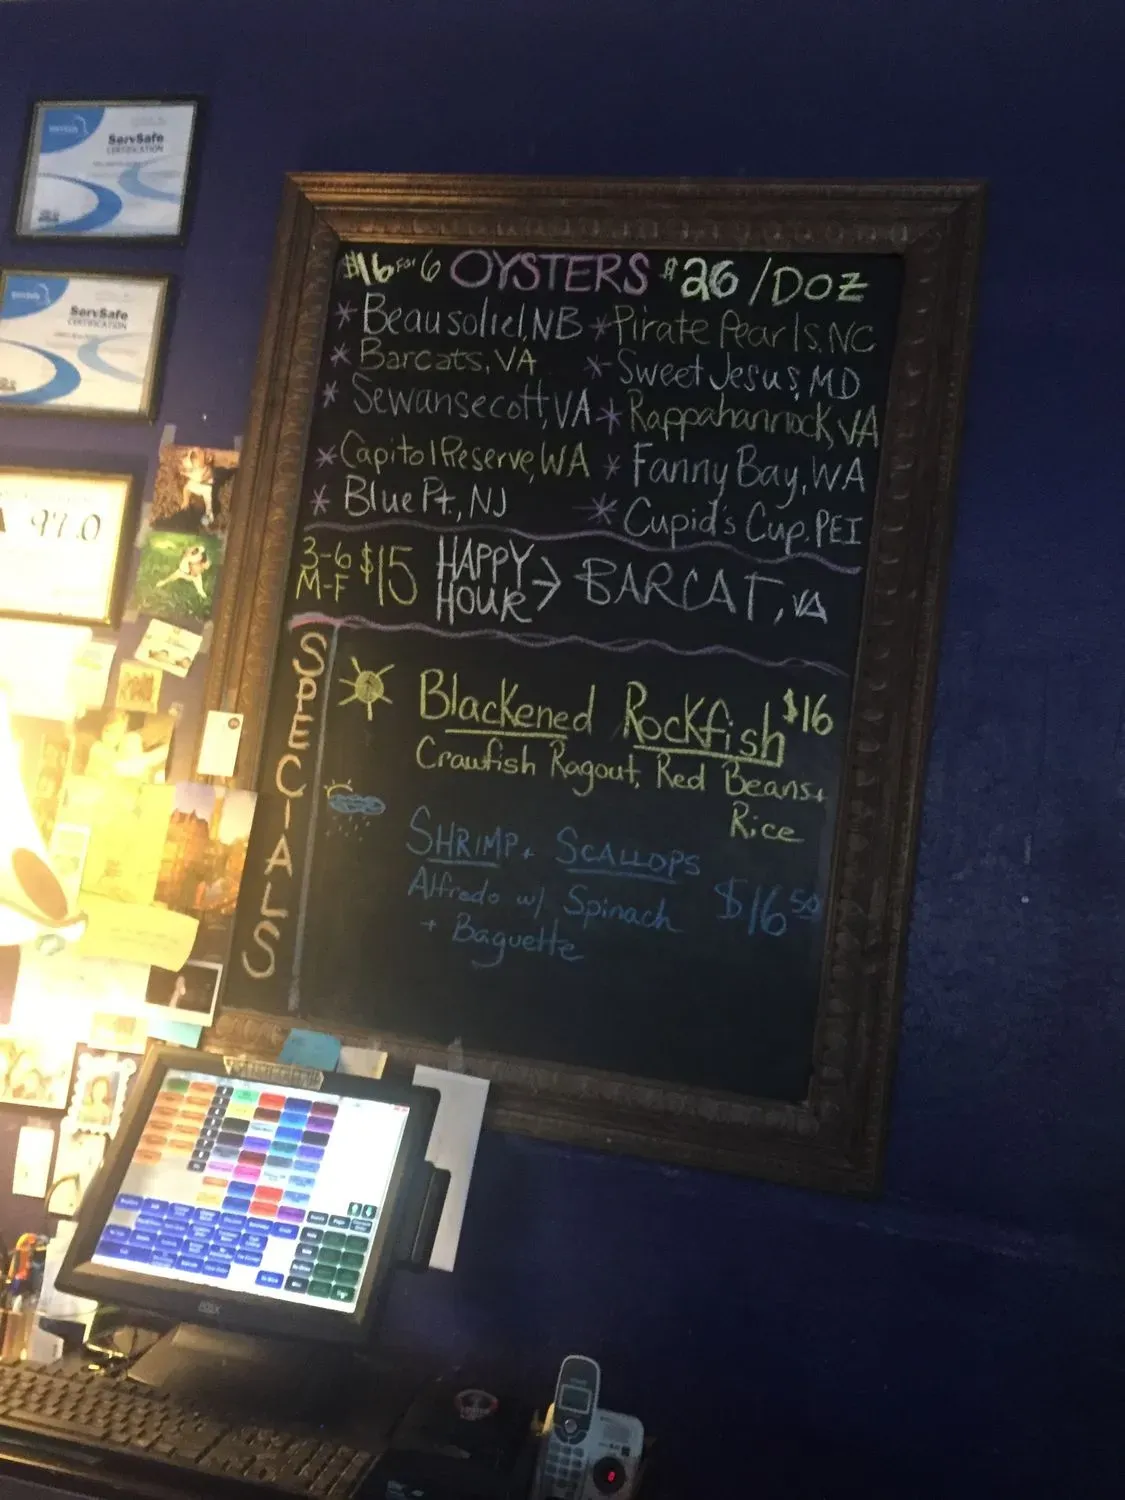 ServSafe
CERTIFICATION
ServSafe
CERTIFICATION
97.0
$16 for 6 OYSTERS $26/DOZ
* Beausoliel, NB * Pirate Pearls, NC
* Barcats, VA * Sweet Jesus, MD
* Sewansecott, VA * Rappahannock, VA
* Capitol Reserve, WA * Fanny Bay, WA
* Blue Pt., NJ * Cupid's Cup, PEI
3-6 M-F $15 HAPPY HOUR > BARCAT, VA
SPECIALS
Blackened Rockfish $16
Crawfish Ragout, Red Beans +
Rice
SHRIMP + SCALLOPS
Alfredo w/ Spinach $16 50
+ Baguette